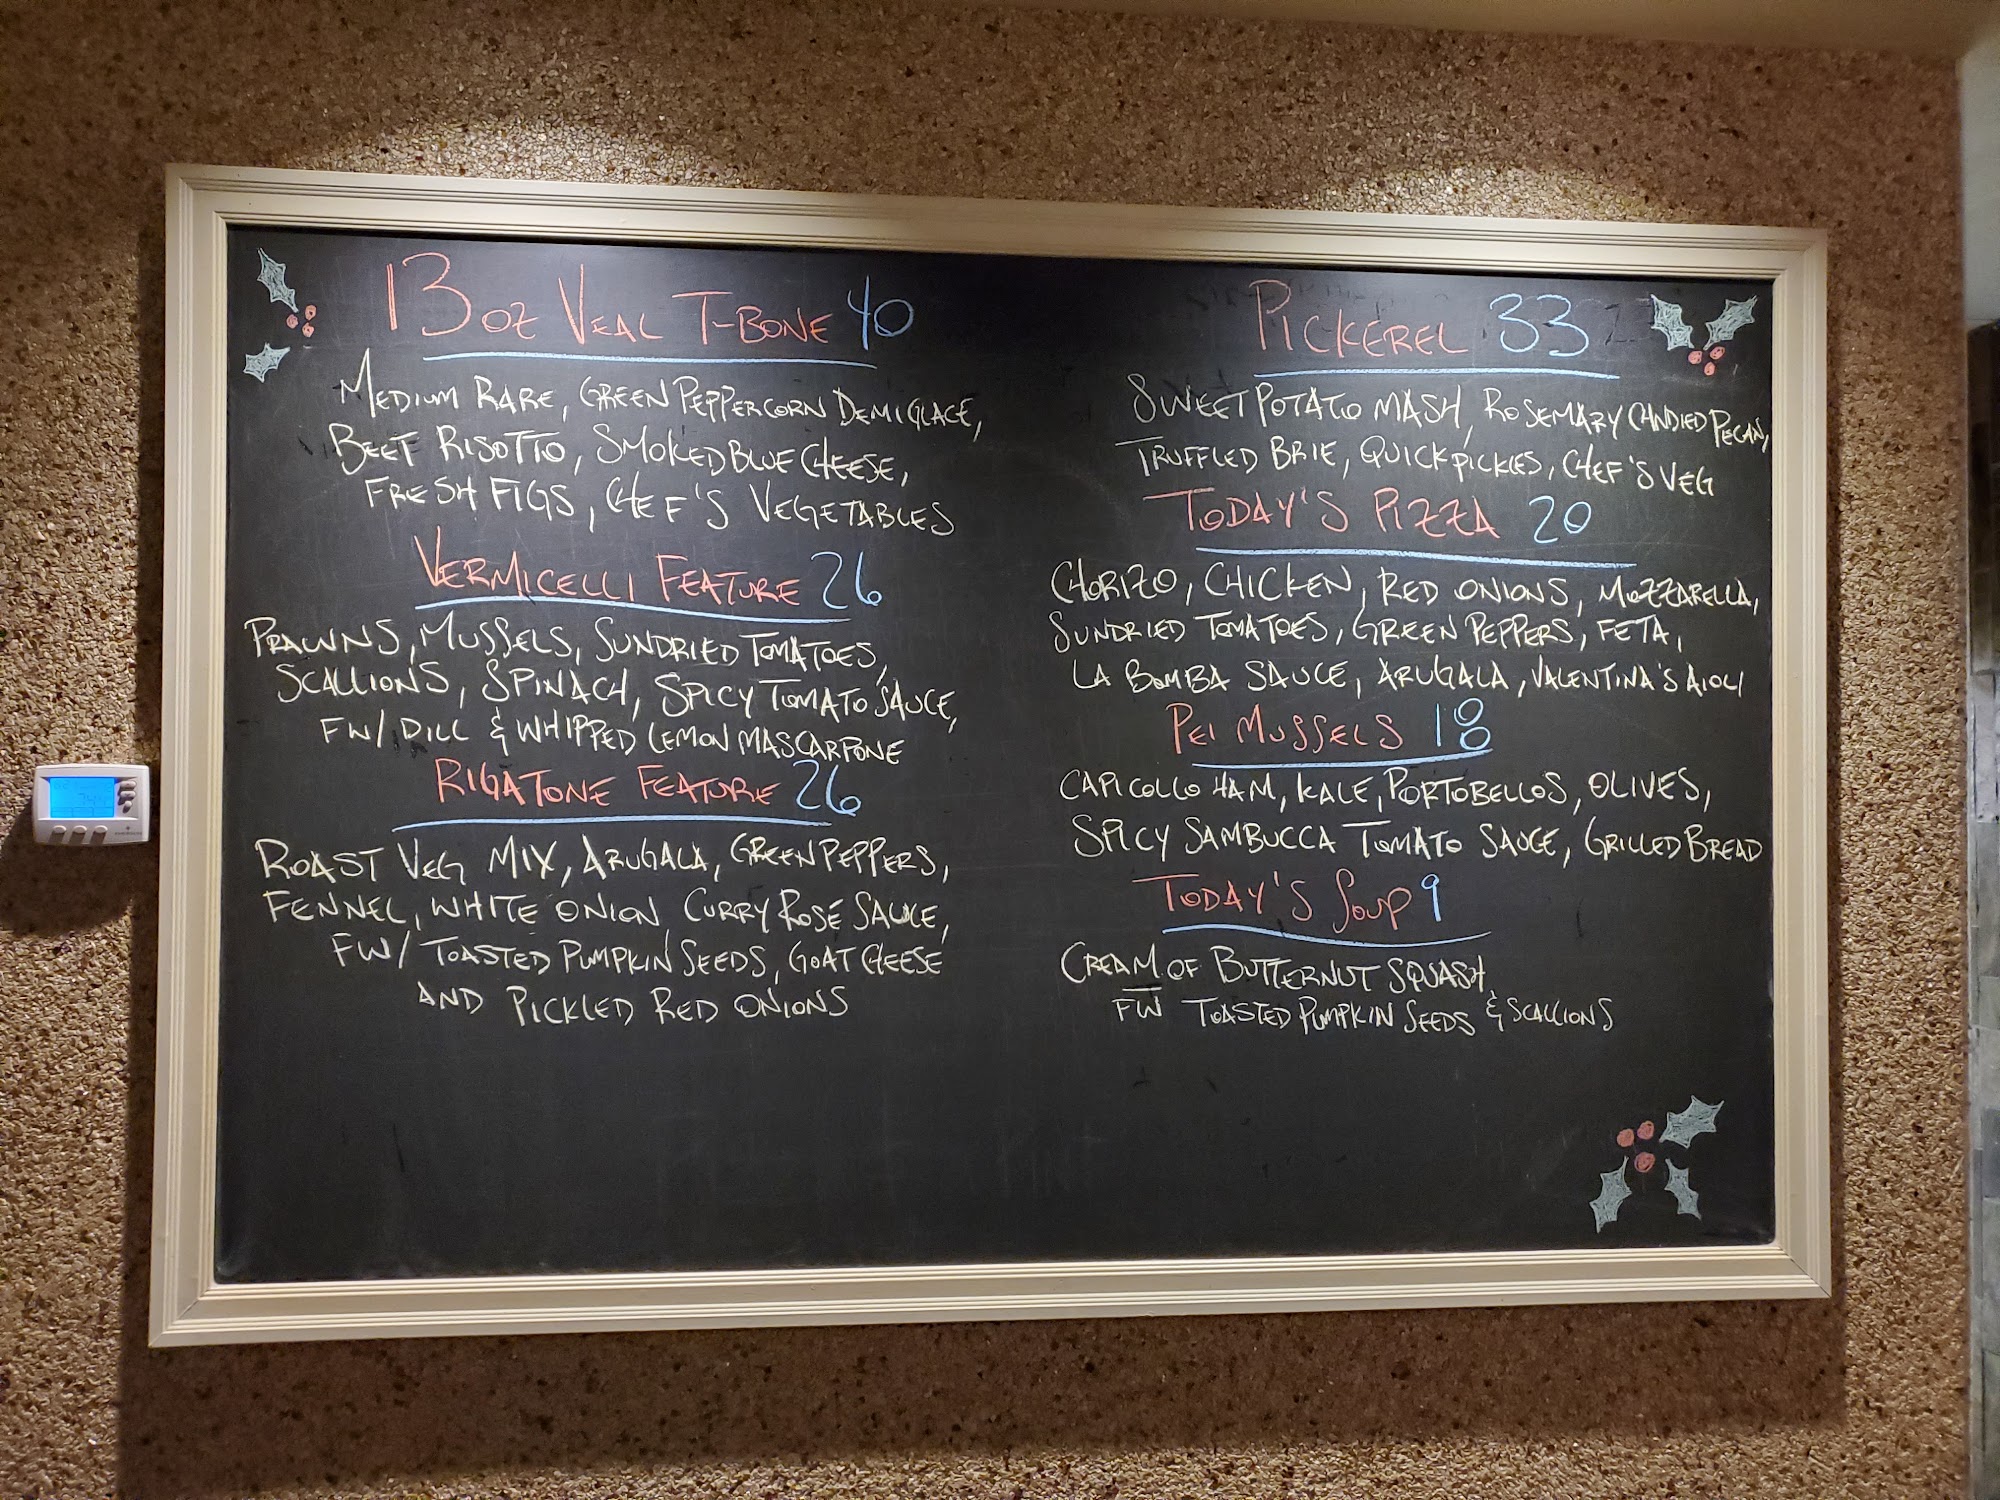 13 oz Veal T-Bone 40
Medium Rare, Green Peppercorn Demi Glace,
Beet Risotto, Smoked Blue Cheese,
Fresh Figs, Chef's Vegetables
Vermicelli Feature 26
Prawns, Mussels, Sundried Tomatoes,
Scallions, Spinach, Spicy Tomato Sauce,
FW/ Dill & Whipped Lemon Mascarpone
Rigatone Feature 26
Roast Veg Mix, Arugala, Green Peppers,
Fennel, White Onion, Curry Rosé Sauce,
FW/ Toasted Pumpkin Seeds, Goat Cheese
and Pickled Red Onions
Pickerel 33
Sweet Potato Mash, Rosemary Candied Pecan,
Truffled Brie, Quick Pickles, Chef's Veg
Today's Pizza 20
Chorizo, Chicken, Red Onions, Mozzarella,
Sundried Tomatoes, Green Peppers, Feta,
La Bomba Sauce, Arugala, Valentina's Aioli
Pei Mussels 18
Capicollo Ham, Kale, Portobellos, Olives,
Spicy Sambucca Tomato Sauce, Grilled Bread
Today's Soup 9
Cream of Butternut Squash,
FW Toasted Pumpkin Seeds & Scallions